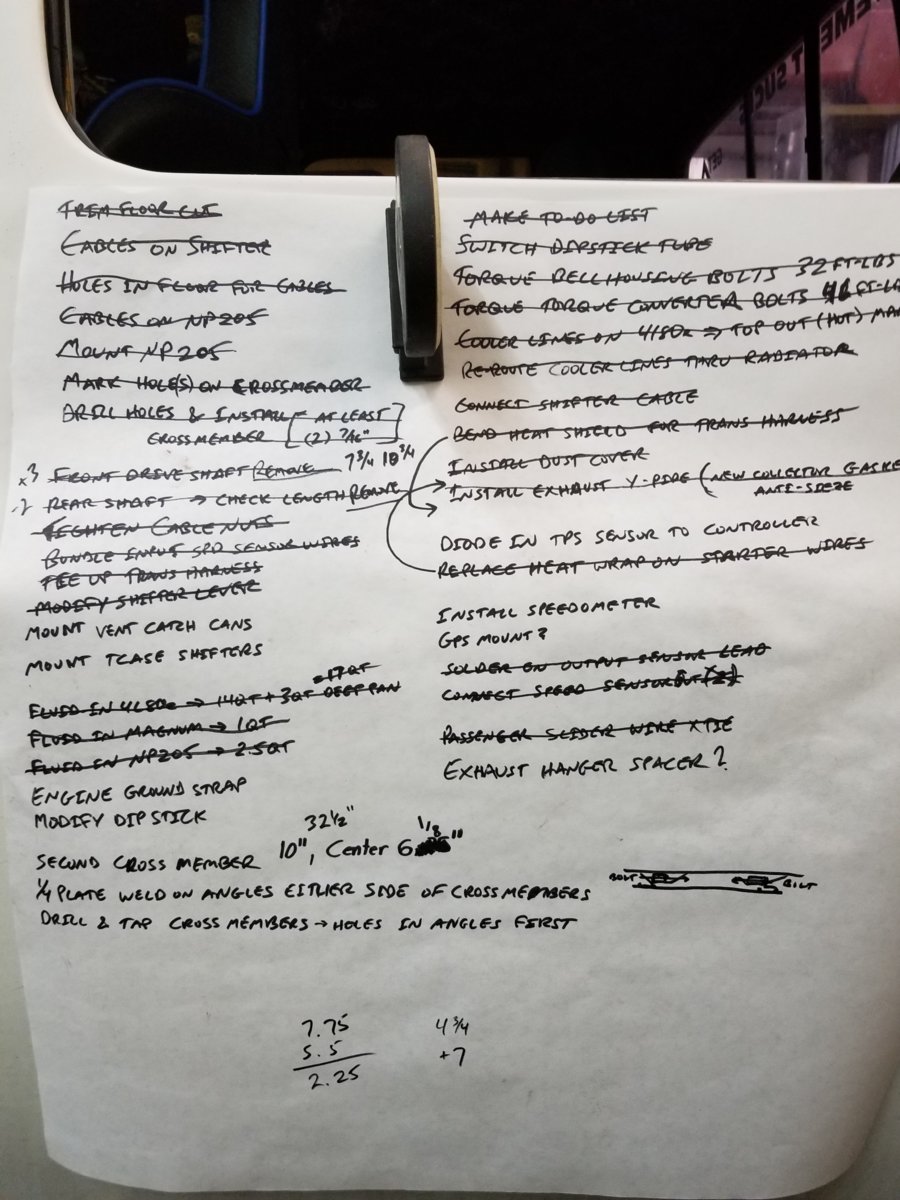 TRIM FLOOR CUT
CABLES ON SHIFTER
HOLES IN FLOOR FOR CABLES
CABLES ON NP205
MOUNT NP205
MARK HOLE(S) ON CROSSMEMBER
DRILL HOLES & INSTALL [AT LEAST
CROSSMEMBER (2) 7/16"]
x3 FRONT DRIVE SHAFT REMOVE 7 3/4 18 3/4
REAR SHAFT → CHECK LENGTH REMOVE
TIGHTEN CABLE NUTS
BUNDLE INPUT SPD SENSOR WIRES
TIE UP TRANS HARNESS
MODIFY SHIFTER LEVER
MOUNT VENT CATCH CANS
MOUNT TCASE SHIFTERS
=17QT
FLUID IN 4L80e → 14QT + 3QT DEEP PAN
FLUID IN MAGNUM → 1QT
FLUID IN NP205 → 2.5QT
ENGINE GROUND STRAP
MODIFY DIPSTICK
32 1/2"
SECOND CROSS MEMBER 10", Center 6 1/8"
1/4 PLATE WELD ON ANGLES EITHER SIDE OF CROSSMEMBERS
DRILL & TAP CROSS MEMBERS → HOLES IN ANGLES FIRST
7.75
5.5
2.25
4 3/4
+7
MAKE TO-DO LIST
SWITCH DIPSTICK TUBE
TORQUE BELLHOUSING BOLTS 32 FT-LBS
TORQUE TORQUE CONVERTER BOLTS 46 FT-LB
COOLER LINES ON 4L80e → TOP OUT (HOT)
RE-ROUTE COOLER LINES THRU RADIATOR
CONNECT SHIFTER CABLE
BEND HEAT SHIELD FOR TRANS HARNESS
INSTALL DUST COVER
INSTALL EXHAUST Y-PIPE (NEW COLLECTOR GASKE
ANTI-SIEZE
DIODE IN TPS SENSOR TO CONTROLLER
REPLACE HEAT WRAP ON STARTER WIRES
INSTALL SPEEDOMETER
GPS MOUNT?
SOLDER ON OUTPUT SENSOR LEAD
CONNECT SPEED SENSOR (2)
PASSENGER SLIDER WIRE XTIE
EXHAUST HANGER SPACER?
BOLT BOLT